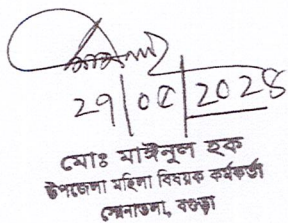 29/05/2025
মোঃ মাইনুল হক
উপজেলা মহিলা বিষয়ক কর্মকর্তা
সোনাতলা, বগুড়া